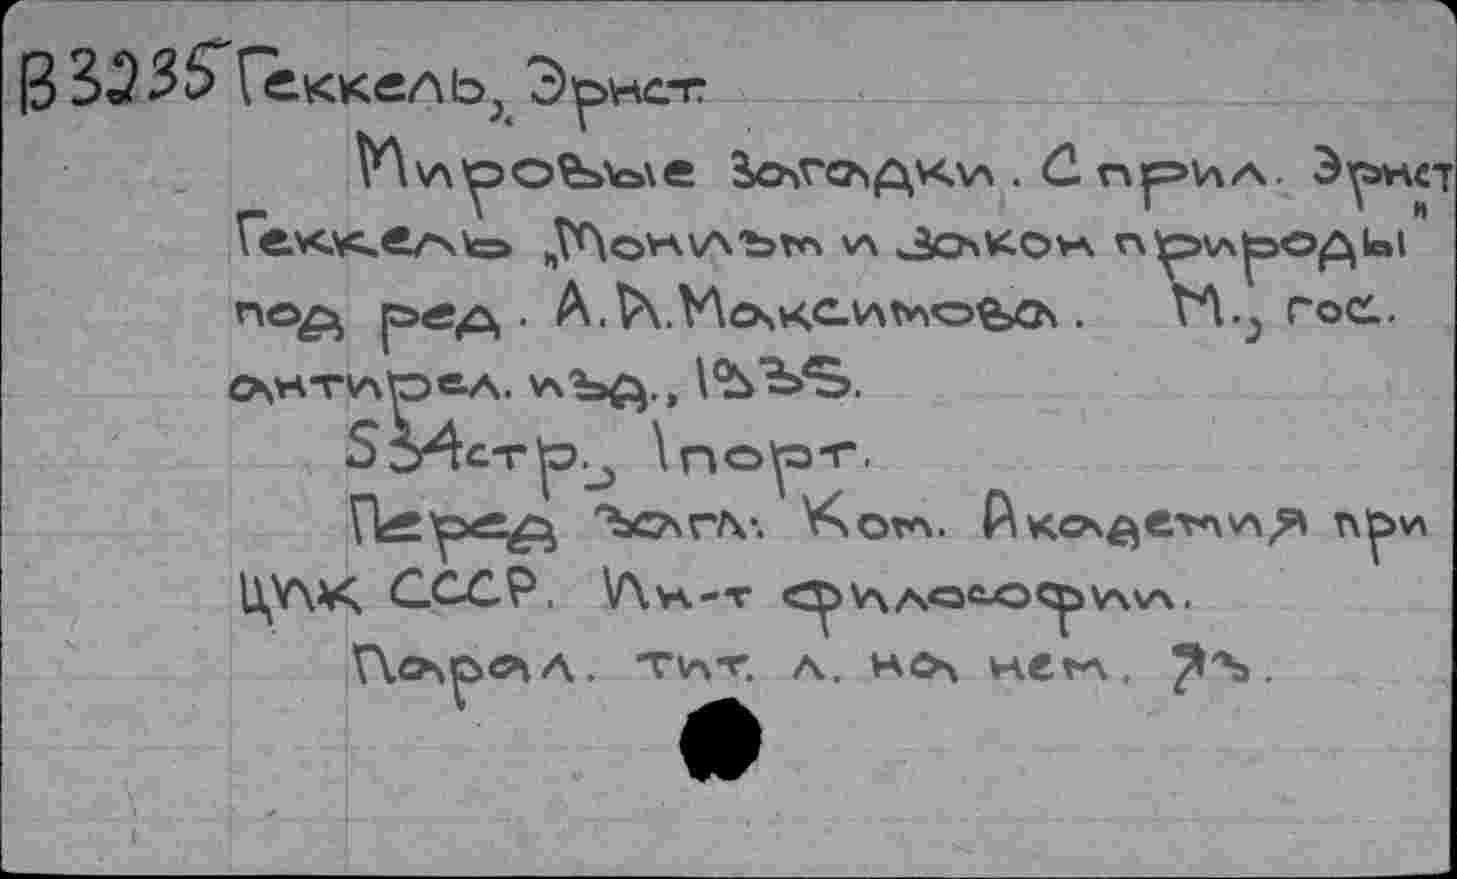 В3235 Геккель, Эрнст.
Мировые загадки. С прил. Эрнст
Геккель „Монизм и закон природы"
под ред. А.А.Максимова. М., гос.
антирел. изд., 1935.
534стр., 1порт.
Перед загл: Ком. Академия при
ЦИК СССР. Ин-т философии.
Парал. тит. л. на нем. яз.